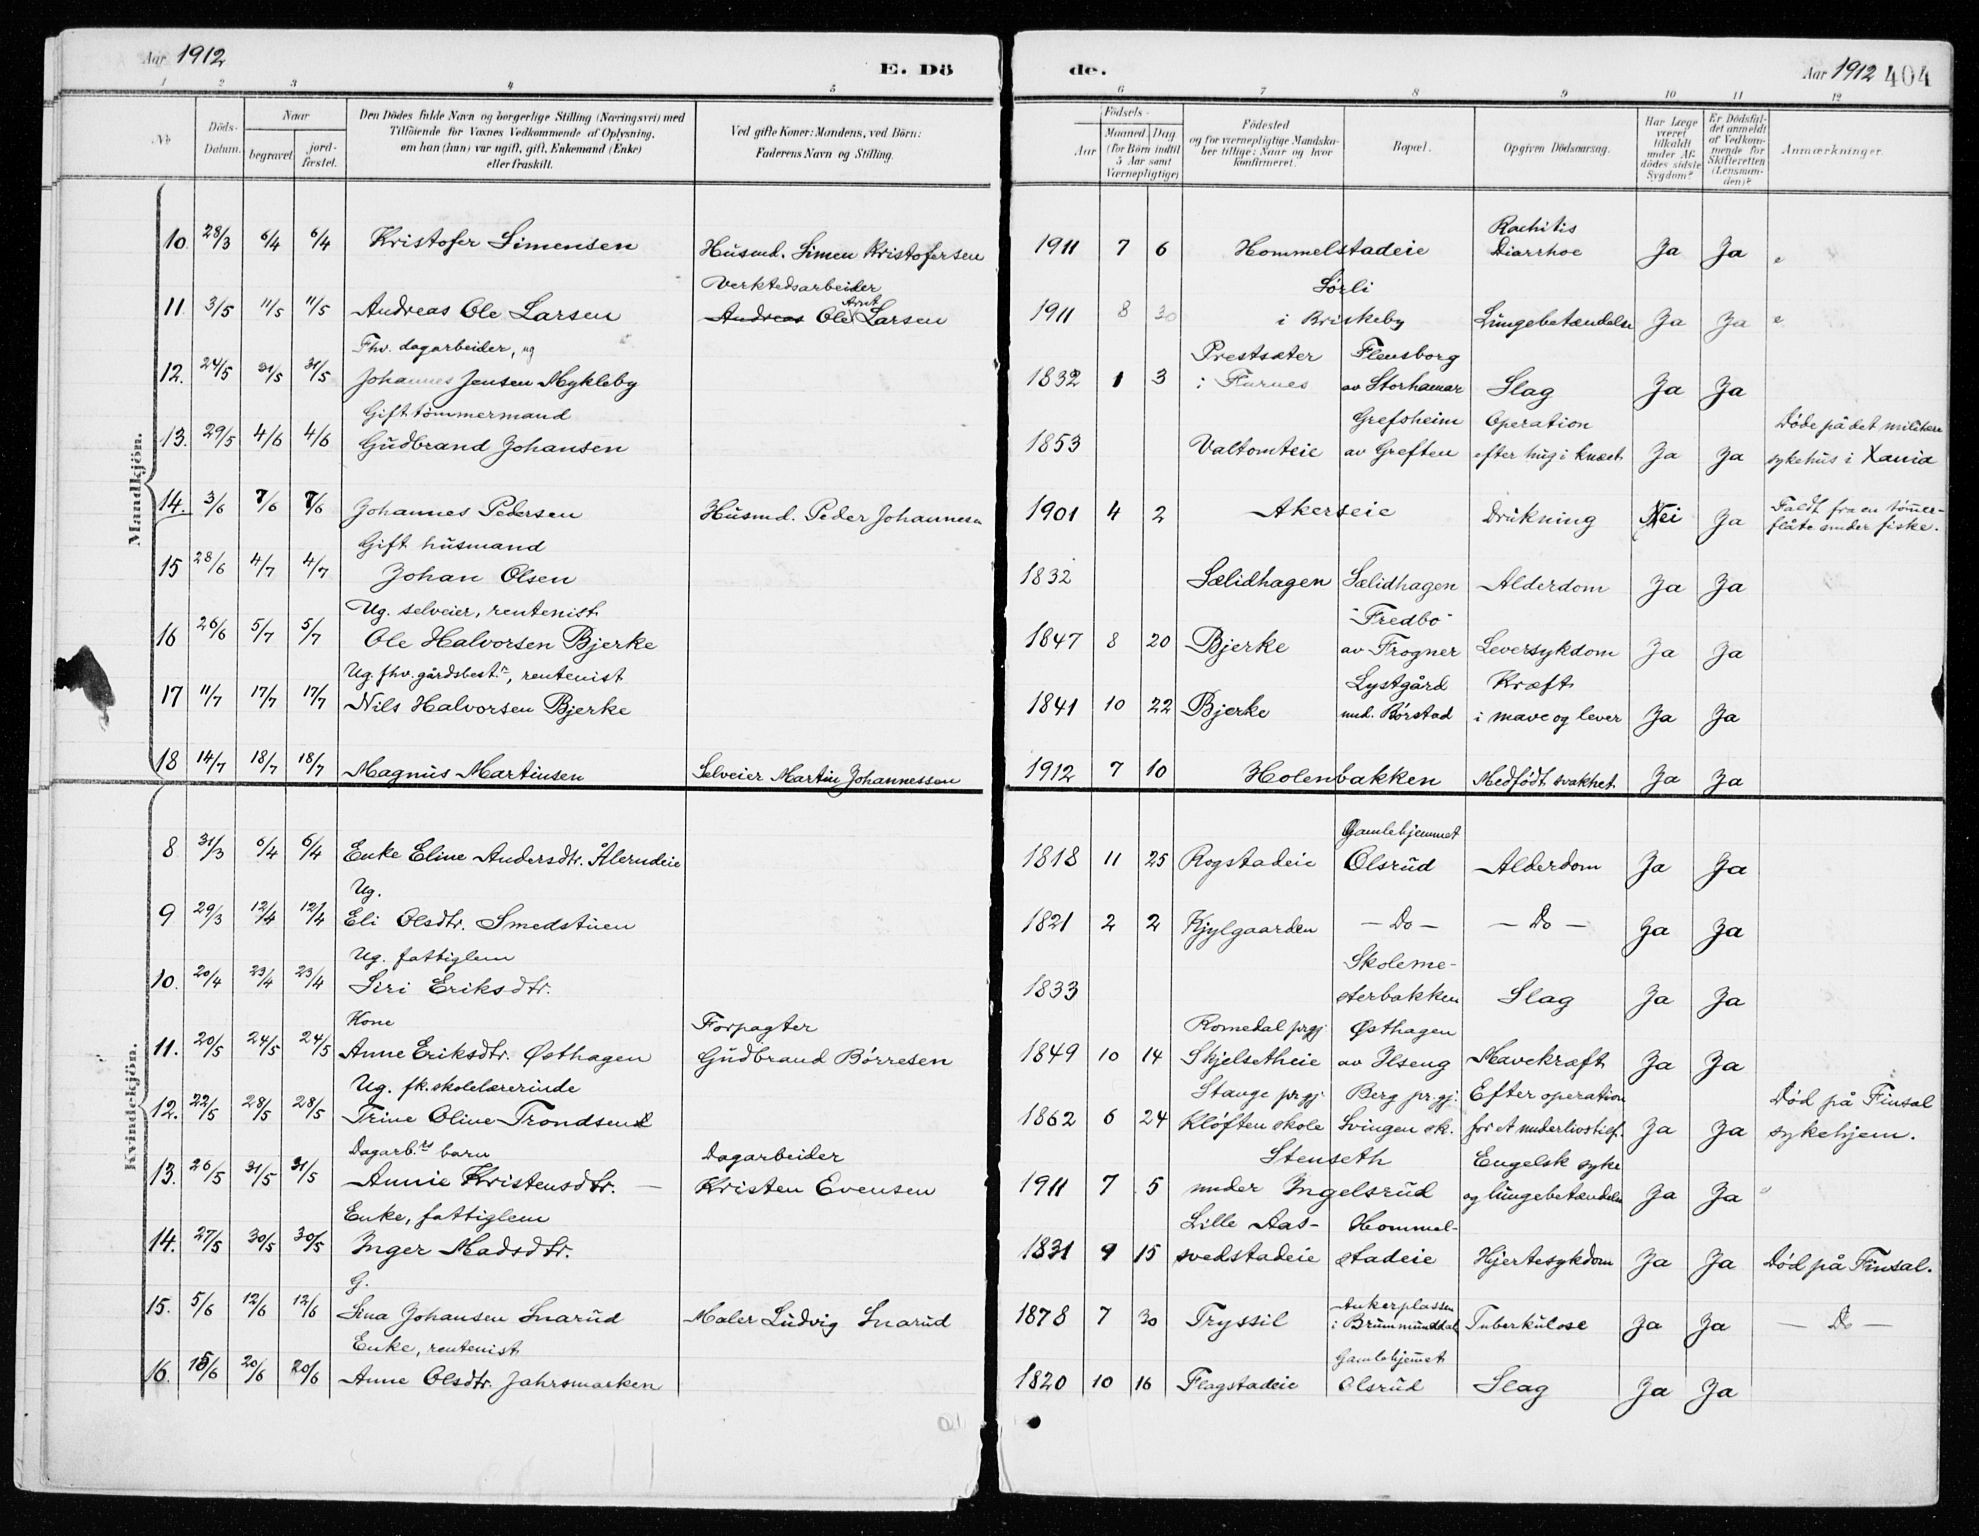 Aar 1912
E. Dö
de.
Aar 1912 404
1 2 3 4 5 6 7 8 9 10 11 12
No
Döds-Datum.
Naar
begravet.
jord-fæstet.
Den Dödes fulde Navn og borgerlige Stilling (Næringsvei) med
Tilföiende for Voxnes Vedkommende af Oplysning,
om han (hun) var ugift, gift, Enkemand (Enke)
eller fraskilt.
Ved gifte Koner: Mandens, ved Börn:
Faderens Navn og Stilling.
Födsels-
Aar
Maaned Dag
(for Börn indtil
5 Aar samt
Værnepligtige)
Födested
og for værnepligtige Mandska-
ber tillige: Naar og hvor
konfirmeret.
Bopæl.
Opgiven Dödsaarsag.
Har Læge
været
tilkaldt
under Af-
dödes sidste
Sygdom?
Er Dödsfal-
det anmeldt
af Vedkom-
mende for
Skifteretten
(Lensman-
den)?
Anmærkninger.
Mandkjön.
10. 28/3 6/4 6/4 Kristofer Simensen Husmd. Simen Kristofersen 1911 7 6 Hommelstadeie Rachitis Diarrhoe Ja Ja
Verktedsarbeider Sørli
11. 3/5 11/5 11/5 Andreas Ole Larsen Andreas Ole Arnt Larsen 1911 8 30 i Briskeby Lungebetændelse Ja Ja
Fhv. dagarbeider, ug Prestsæter Flensborg
12. 24/5 31/5 31/5 Johannes Jensen Mykleby 1832 1 3 i Furnes av Storhamar Slag Ja Ja
Gift tømmermand Grefsheim Operation Døde på det militære
13. 29/5 4/6 4/6 Gudbrand Johansen 1853 Valtomteie av Greften efter hug i knæet Ja Ja sykehus i Xania
14. 3/6 7/6 7/6 Johannes Pedersen Husmd. Peder Johannesen 1901 4 2 Akerseie Drukning Nei Ja Faldt fra en tømmer-
flåte under fiske.
Gift husmand
15 28/6 4/7 4/7 Johan Olsen 1832 Sælidhagen Sælidhagen Alderdom Ja Ja
Ug. selveier, rentenist "Fredbo"
16 26/6 5/7 5/7 Ole Halvorsen Bjerke 1847 8 20 Bjerke av Frogner Leversykdom Ja Ja
Ug. fhv. gårdsbest.r, rentenist Lystgård Kræft
17 11/7 17/7 17/7 Nils Halvorsen Bjerke 1841 10 22 Bjerke und. Børstad i mave og lever Ja Ja
18 14/7 18/7 18/7 Magnus Martinsen Selveier Martin Johannessen 1912 7 10 Holenbakken Medfødt svakhet Ja Ja
Kvindekjön.
Gamlehjemmet
8 31/3 6/4 6/4 Enke Eline Andersdtr. Ålerudeie 1818 11 25 Rogstadeie Olsrud Alderdom Ja Ja
Ug.
9 29/3 12/4 12/4 Eli Olsdtr. Smedstuen 1821 2 2 Kjylgaarden — Do — — Do — Ja Ja
Ug. fattiglem Skoleme-
10. 20/4 23/4 23/4 Siri Eriksdtr. 1833 sterbakken Slag Ja Ja
Kone Forpagter Romedal prgj. Østhagen
11. 20/5 24/5 24/5 Anne Eriksdtr. Østhagen Gudbrand Børresen 1849 10 14 Skjelsetheie av Ilseng Mavekræft Ja Ja
Ug. fk. skolelærerinde Stange prgj. Berg pr.gj. Efter operation Død på Finsal
12. 22/5 28/5 28/5 Trine Oline Trondsen 1862 6 24 Kløften skole Svingen sk. for et underlivstilf. Ja Ja sykehjem.
Dagarb.rs barn Dagarbeider Stenseth Engelsk syke
13. 26/5 31/5 31/5 Annie Kristensdtr. — Kristen Evensen 1911 7 5 under Ingelsrud og lungebetændelse Ja Ja
Enke, fattiglem Lille Aas- Hommel-
14. 27/5 30/5 30/5 Inger Madsdtr. 1831 9 15 svedstadeie stadeie Hjertesykdom Ja Ja Død på Finsal.
G. Ankerplassen
15. 5/6 12/6 12/6 Lina Johansen Snarud Maler Ludvig Snarud 1878 7 30 Tryssil i Brummunddal Tuberkulose Ja Ja — Do —
Enke, rentenist Gamlehjemmet
16. 15/6 20/6 20/6 Anne Olsdtr. Jahrsmarken 1820 10 16 Flagstadeie Olsrud Slag Ja Ja